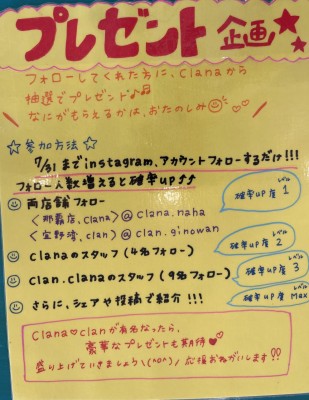 プレゼント企画
フォローしてくれた方に、Clanaから
抽選でプレゼント♪♬
なにがもらえるかは、おたのしみ
☆参加方法☆
7/31までinstagram、アカウントフォローするだけ!!!
フォロー人数増えると確率up♪♪
両店舗フォロー
<那覇店、Clana>@clana.naha
<宜野湾、clan>@clan.ginowan
確率up度 レベル1
clanaのスタッフ(4名フォロー)
確率up度 レベル2
Clan.clanaのスタッフ(9名フォロー)
確率up度 レベル3
さらに、シェアや投稿で紹介!!!
確率up度 レベルMax
Clana♡clanが有名なったら、
豪華なプレゼントも期待♥
盛り上げていきましょう\(^o^)/応援おねがいします!?